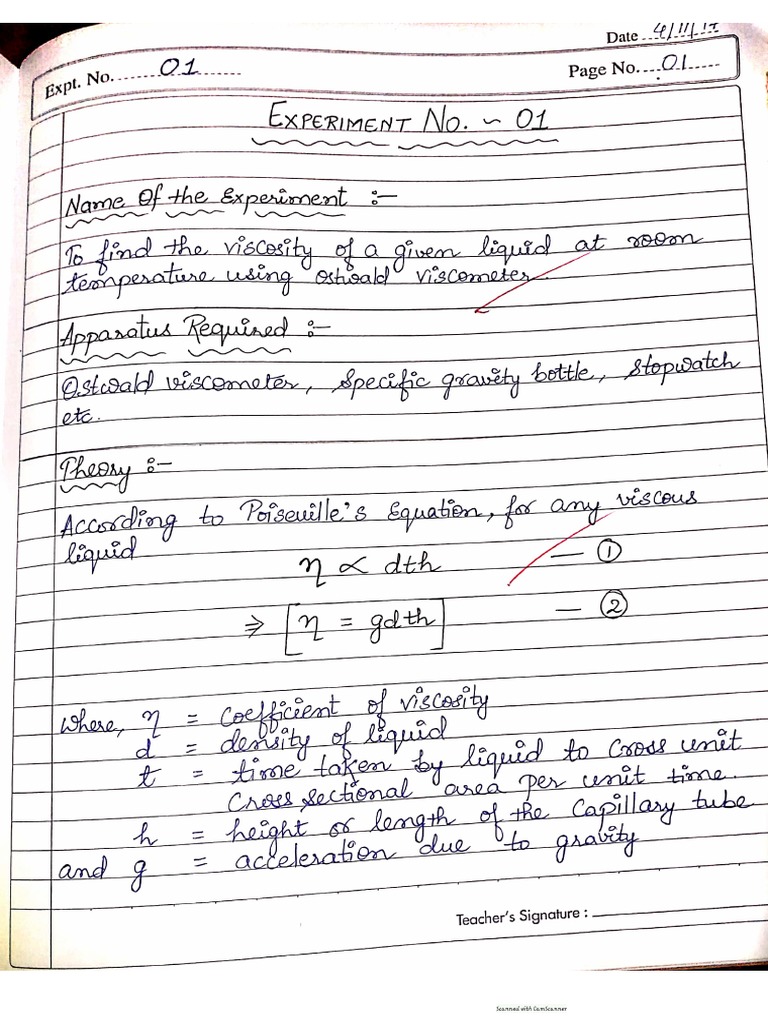 Date 4/11/17
Expt. No. 01
Page No. 01
EXPERIMENT No. ~ 01
Name Of the Experiment :-
To find the viscosity of a given liquid at room
temperature using ostwald viscometer.
Apparatus Required :-
Ostwald viscometer, Specific gravity bottle, Stopwatch
etc.
Theory :-
According to Poiseuille's Equation, for any viscous
liquid
η ∝ dth — ①
⇒ [η = gdth] — ②
where, η = Coefficient of viscosity
d = density of liquid
t = time taken by liquid to Cross unit
Cross sectional area per unit time.
h = height or length of the Capillary tube
and g = acceleration due to gravity
Teacher's Signature :
Scanned with CamScanner